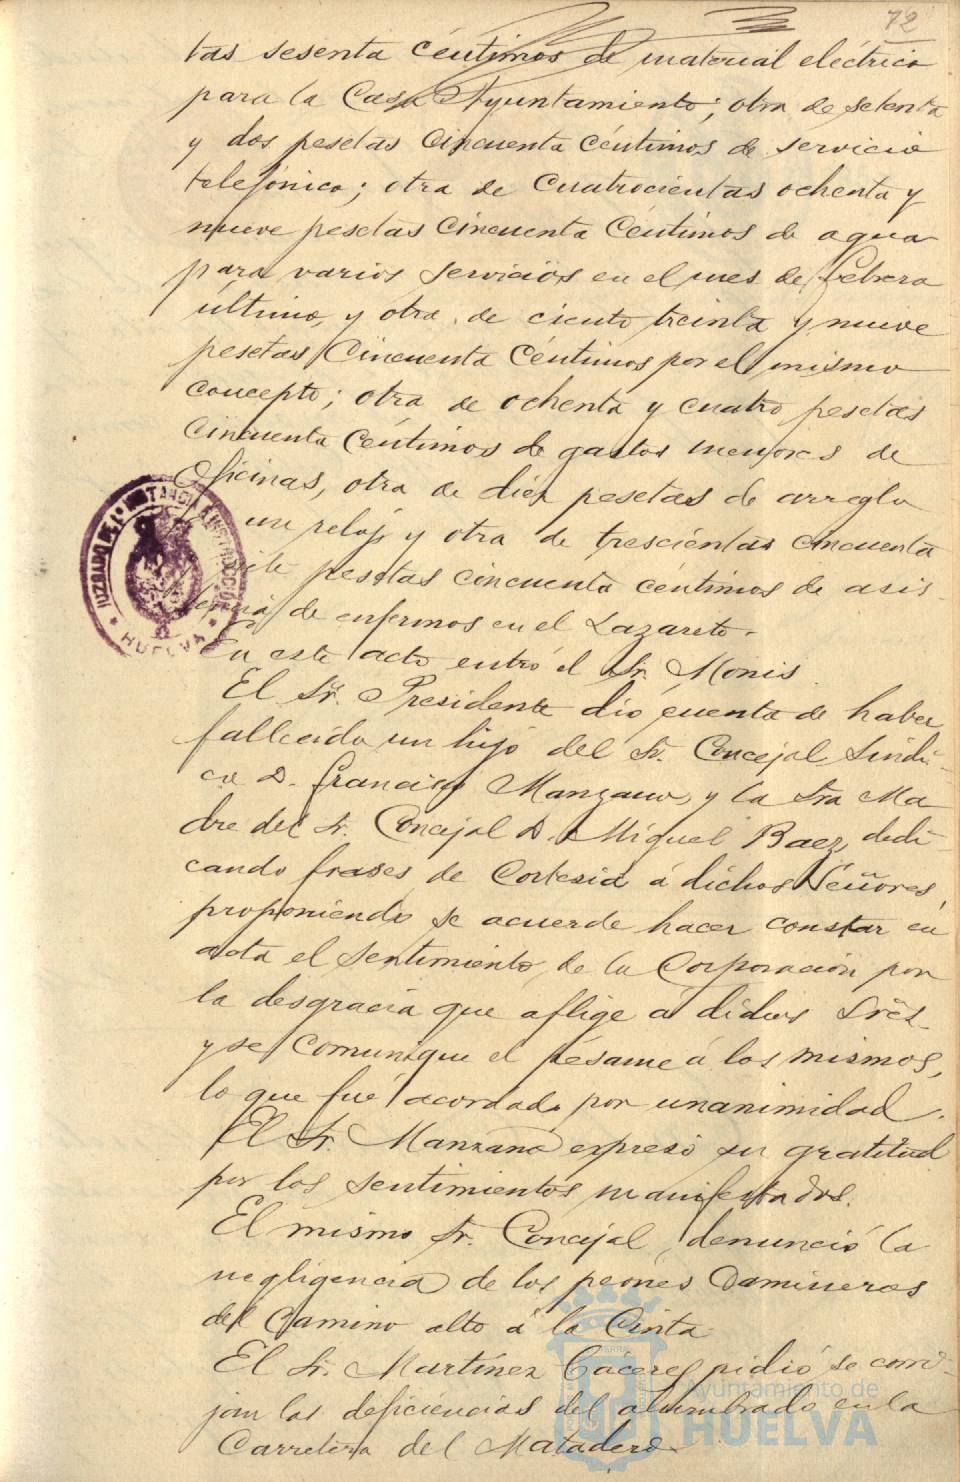 72
tas sesenta céntimos de material eléctrico
para la Casa Ayuntamiento; otra de setenta
y dos pesetas cincuenta céntimos de servicio
telefónico; otra de cuatrocientas ochenta y
nueve pesetas cincuenta céntimos de agua
para varios servicios en el mes de Febrero
último, y otra de ciento treinta y nueve
pesetas cincuenta céntimos por el mismo
concepto; otra de ochenta y cuatro pesetas
cincuenta céntimos de gastos menores de
Oficinas, otra de diez pesetas de arreglo
un reloj, y otra de trescientas cincuenta
pesetas cincuenta céntimos de asis-
tencia de enfermos en el Lazareto.
En este acto entró el Sr. Monis.
El Sr. Presidente dió cuenta de haber
fallecido un hijo del Sr. Concejal Síndi-
co D. Francisco Manzano, y la Sra Ma
dre del Sr. Concejal D. Miguel Baez, dedi-
cando frases de cortesia á dichos Señores,
proponiendo se acuerde hacer constar en
acta el sentimiento de la Corporación por
la desgracia que aflige á dichos Sres.
y se comunique el pésame á los mismos,
lo que fué acordado por unanimidad.
El Sr. Manzano expresó su gratitud
por los sentimientos manifestados.
El mismo Sr. Concejal, denunció la
negligencia de los peones Camineros
del Camino alto á la Cinta
El Sr. Martínez Cáceres pidió se corri-
jan las deficiencias del alumbrado en la
Carretera del Matadero.
JUZGADO DE 1ª INSTANCIA É INSTRUCCION
* HUELVA *
Ayuntamiento de
HUELVA